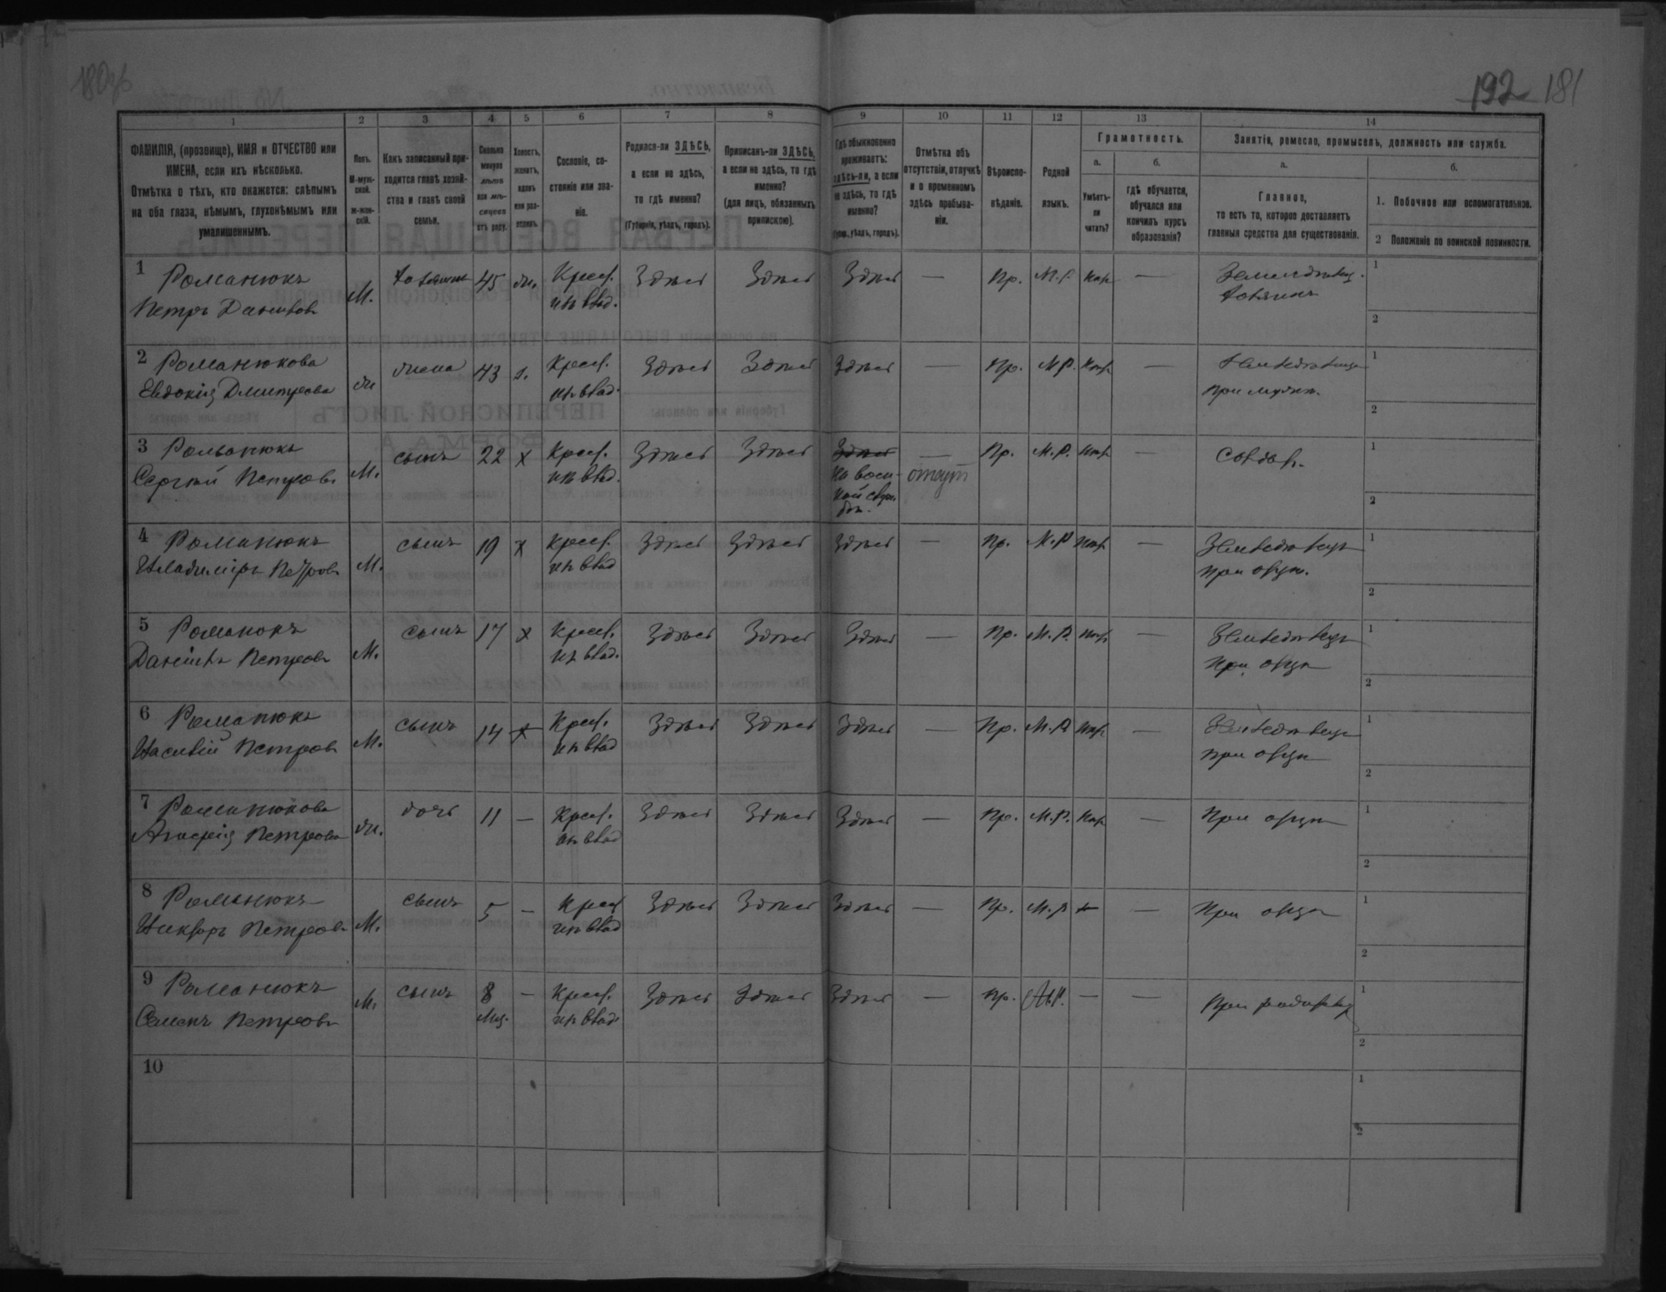 180об
192 181
1 2 3 4 5 6 7 8 9 10 11 12 13 14
ФАМИЛІЯ, (прозвище), ИМЯ и ОТЧЕСТВО или
ИМЕНА, если ихъ нѣсколько.
Отмѣтка о тѣхъ, кто окажется: слѣпымъ
на оба глаза, нѣмымъ, глухонѣмымъ или
умалишеннымъ.
Полъ.
М-муж-
ской.
Ж-жен-
скій.
Какъ записанный при-
ходится главѣ хозяй-
ства и главѣ своей
семьи.
Сколько
минуло
лѣтъ
или мѣ-
сяцевъ
отъ роду.
Холостъ,
женатъ,
вдовъ
или раз-
веденъ.
Сословіе, со-
стояніе или зва-
ніе.
Родился-ли ЗДѢСЬ,
а если не здѣсь,
то гдѣ именно?
(Губернія, уѣздъ, городъ).
Приписанъ-ли ЗДѢСЬ,
а если не здѣсь, то гдѣ
именно?
(для лицъ, обязанныхъ
припискою).
Гдѣ обыкновенно
проживаетъ:
здѣсь-ли, а если
не здѣсь, то гдѣ
именно?
(Губерн., уѣздъ, городъ).
Отмѣтка объ
отсутствіи, отлучкѣ
и о временномъ
здѣсь пребыва-
ніи.
Вѣроиспо-
вѣданіе.
Родной
языкъ.
Грамотность.
а.
Умѣетъ-
ли
читать?
б.
гдѣ обучается,
обучался или
кончилъ курсъ
образованія?
Занятія, ремесло, промыселъ, должность или служба.
а.
Главное,
то есть то, которое доставляетъ
главныя средства для существованія.
б.
1. Побочное или вспомогательное.
2 Положеніе по воинской повинности.
1 Романюкъ
Петръ Данилов
М. хозяинъ 45 ж. Крест. Здѣсь Здѣсь Здѣсь — Пр. М.Р. нѣт. —
изъ влад.
1
2
2 Романюкова
Евдокія Дмитрова
ж жена 43 з. Крест. Здѣсь Здѣсь Здѣсь — Пр. М.Р. нѣт. — Земледѣлица
изъ влад. при мужѣ.
1
2
3 Романюкъ
Сергѣй Петров.
М. сынъ 22 х Крест. Здѣсь Здѣсь Здѣсь — Пр. М.Р. нѣт. Солдат.
изъ влад. на воен-
ной служ-
бѣ.
отсут
1
2
4 Романюкъ
Владиміръ Петров
М. сынъ 19 х Крест. Здѣсь Здѣсь Здѣсь — Пр. М.Р нѣт. — Земледѣлецъ
изъ влад при отцѣ.
1
2
5 Романюкъ
Данiилъ Петров
М. сынъ 17 х Крест. Здѣсь Здѣсь Здѣсь — Пр. М.Р. нѣт. — Земледѣлецъ
изъ влад. при отцѣ
1
2
6 Романюкъ
Василій Петров
М. сынъ 14 х Крест. Здѣсь Здѣсь Здѣсь — Пр. М.Р нѣт. — Земледѣлецъ
изъ влад при отцѣ
1
2
7 Романюкова
Петрова
ж. дочь 11 — Крест. Здѣсь Здѣсь Здѣсь — Пр. М.Р. нѣт. — При отцѣ
изъ влад
1
2
8 Романюкъ
Петров
М. сынъ 5 — Крест Здѣсь Здѣсь Здѣсь — Пр. М.Р — — При отцѣ
изъ влад
1
2
9 Романюкъ
Семенъ Петров
М. сынъ 8 — Крест. Здѣсь Здѣсь Здѣсь — Пр. М.Р. — —
мѣс. изъ влад
1
2
10
1
2